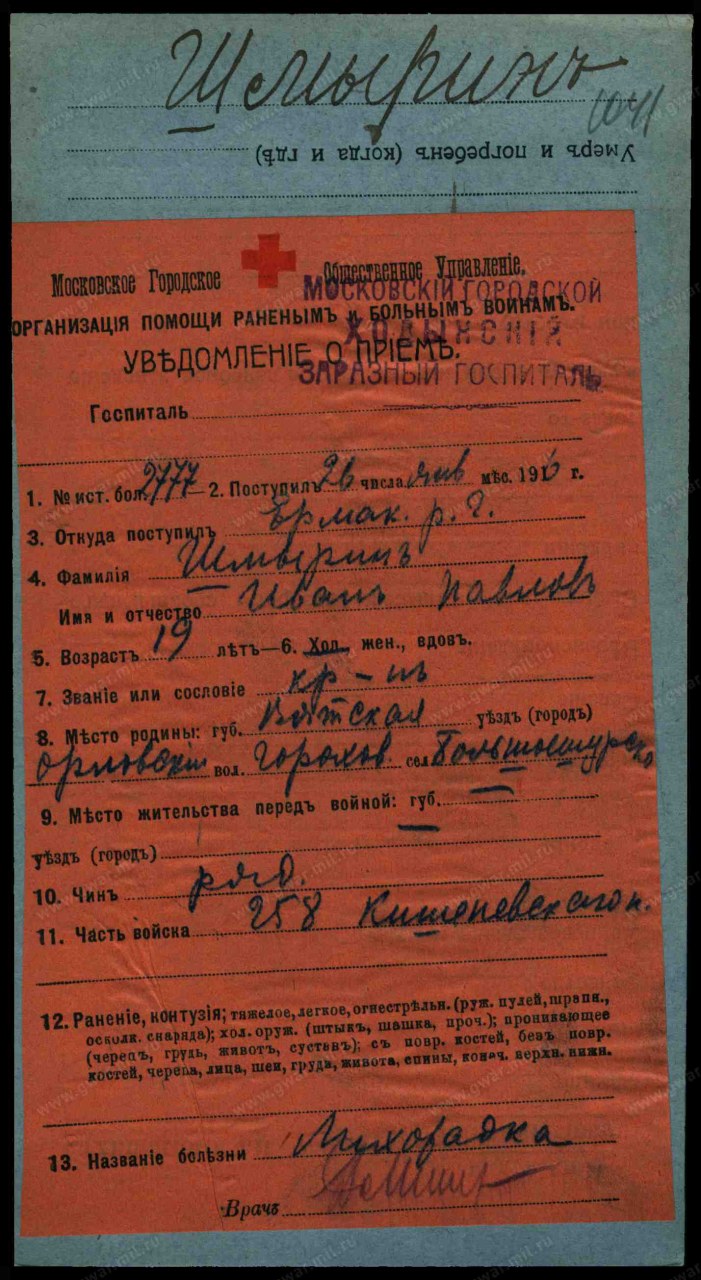 Шемыринъ
1041
Умеръ и погребенъ (когда и гдѣ)
Московское Городское Общественное Управленіе.
МОСКОВСКІЙ ГОРОДСКОЙ
ОРГАНИЗАЦІЯ ПОМОЩИ РАНЕНЫМЪ и БОЛЬНЫМЪ ВОИНАМЪ.
ХОДЫНСКІЙ
УВѢДОМЛЕНІЕ О ПРІЕМѢ.
ЗАРАЗНЫЙ ГОСПИТАЛЬ
Госпиталь
1. № ист. бол. 2777 — 2. Поступилъ 26 числа янв мѣс. 1916 г.
3. Откуда поступилъ Ермак. р. г.
4. Фамилія Шмыринъ
Имя и отчество Иванъ Павловъ
5. Возрастъ 19 лѣтъ—6. Хол., жен., вдов.
7. Званіе или сословіе кр-нъ
8. Мѣсто родины: губ. Вятская уѣздъ (городъ)
Орловскій вол. Горохов. сел.
9. Мѣсто жительства передъ войной: губ. —
уѣздъ (городъ)
10. Чинъ ряд.
11. Часть войска 258 Кишеневскаго п.
12. Раненіе, контузія; тяжелое, легкое, огнестрѣльн. (руж. пулей, шрапн.,
осколк. снаряда); хол. оруж. (штыкъ, шашка, проч.); проникающее
(черепъ, грудь, животъ, суставъ); съ повр. костей, безъ повр.
костей, черепа, лица, шеи, груди, живота, спины, конеч. верхн. нижн.
13. Названіе болѣзни Лихорадка
Врачъ